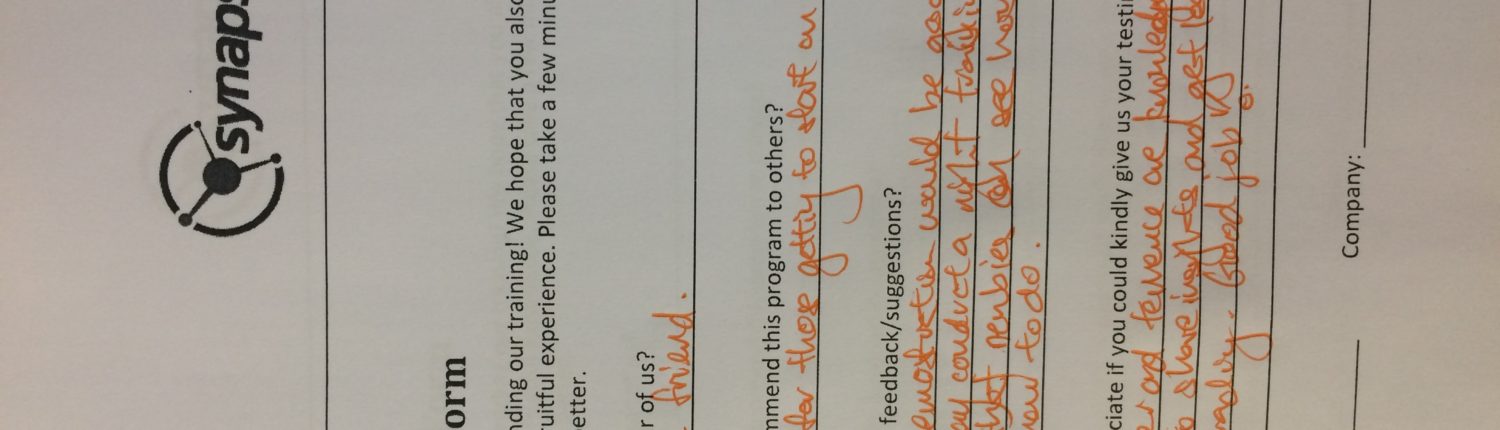 synaps
orm
nding our training! We hope that you also
ruitful experience. Please take a few minu
etter.
r of us?
friend.
mmend this program to others?
for those getting to start on
feedback/suggestions?
would be good
conduct a
newbies can see how
how to do.
ciate if you could kindly give us your testi
and Terrence are knowled
to share insights and get
Good job
Company: